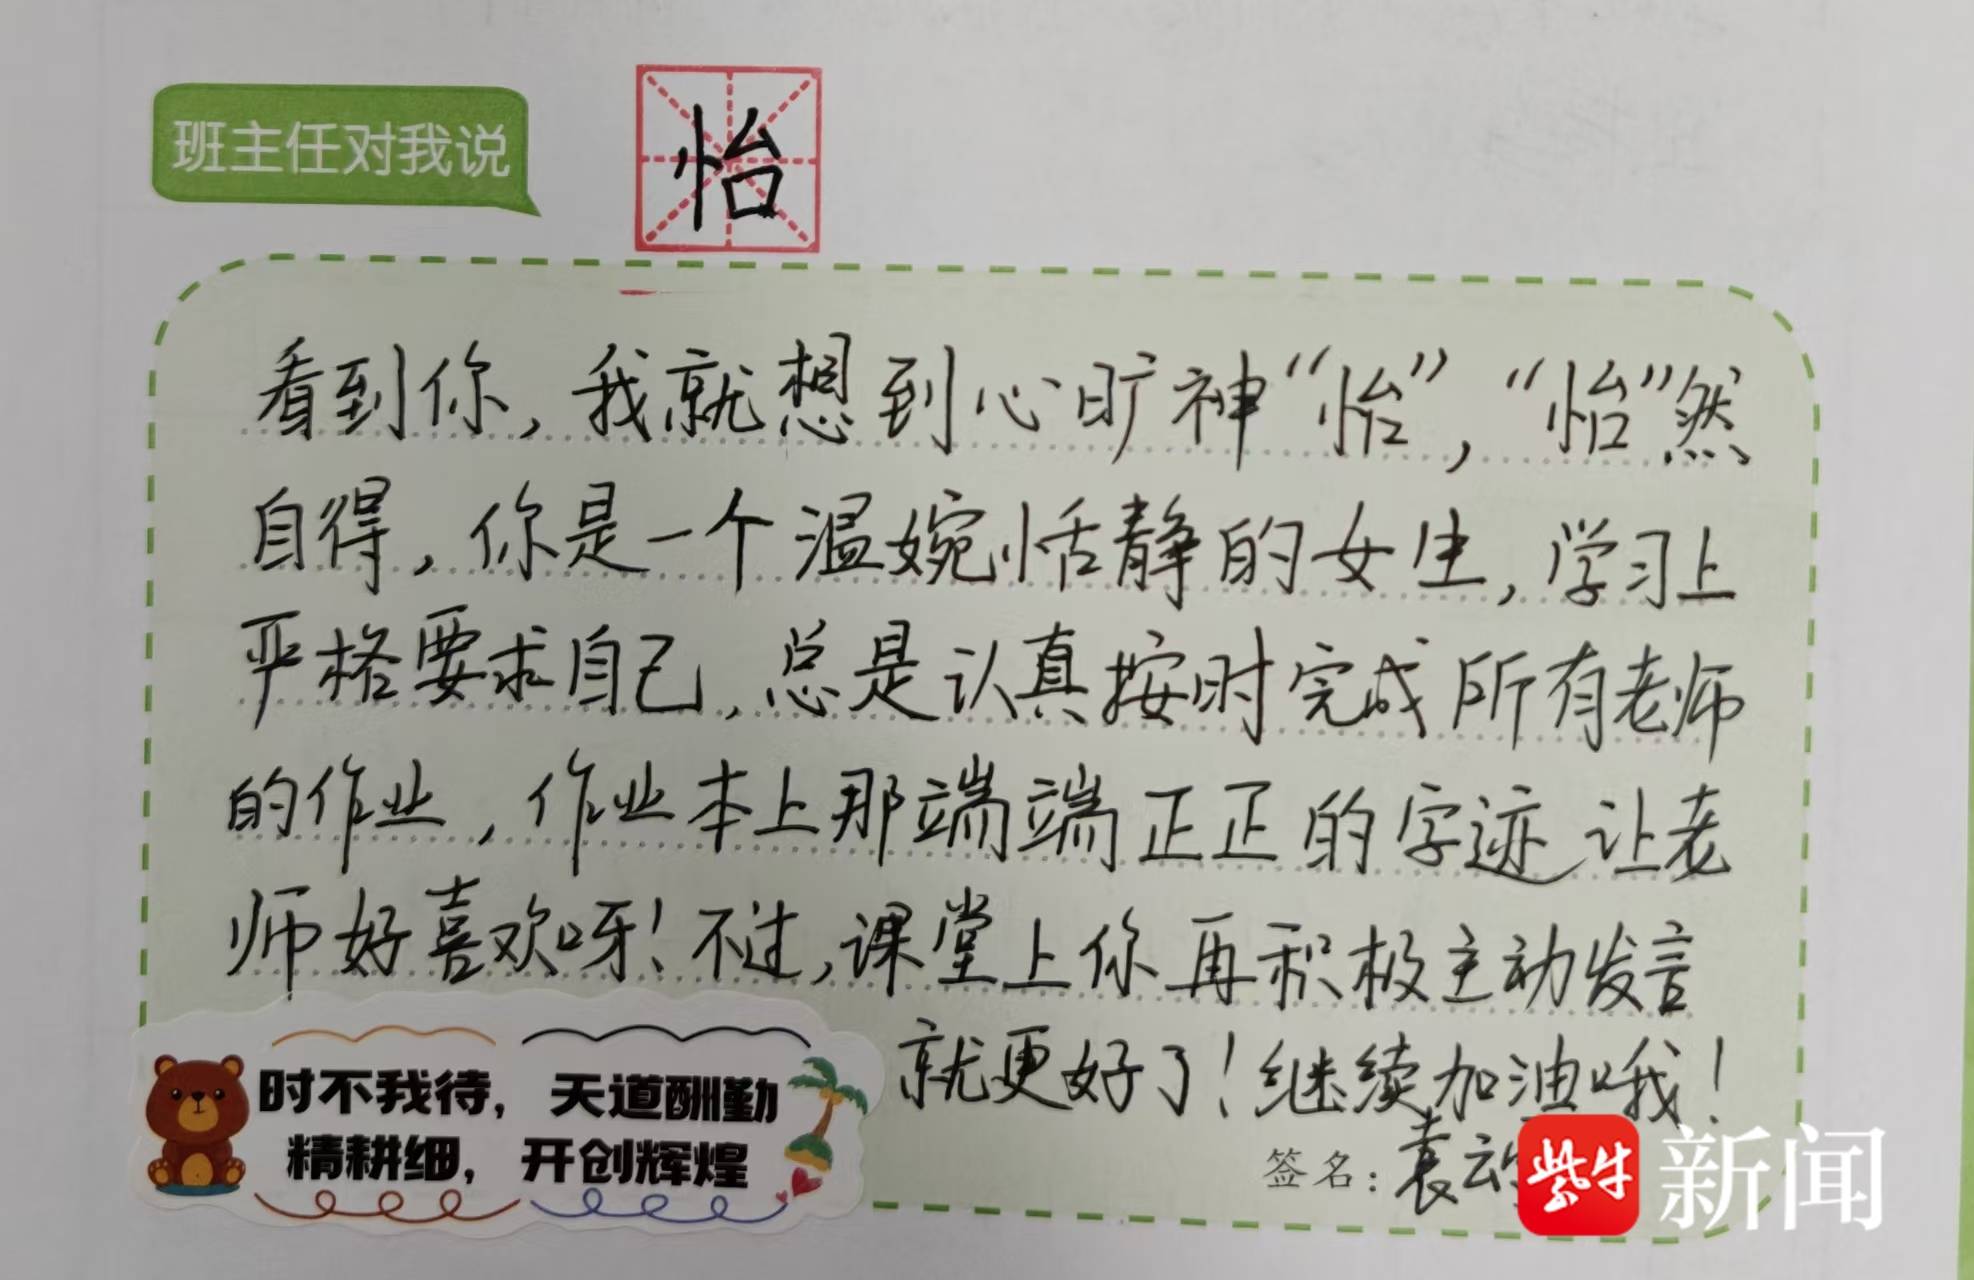 班主任对我说
怡
看到你,我就想到心旷神“怡”,“怡”然
自得,你是一个温婉恬静的女生,学习上
严格要求自己,总是认真按时完成所有老师
的作业,作业本上那端端正正的字迹让老
师好喜欢呀!不过,课堂上你再积极主动发言
就更好了!继续加油哦!
时不我待,天道酬勤
精耕细,开创辉煌
签名:袁云
紫牛新闻